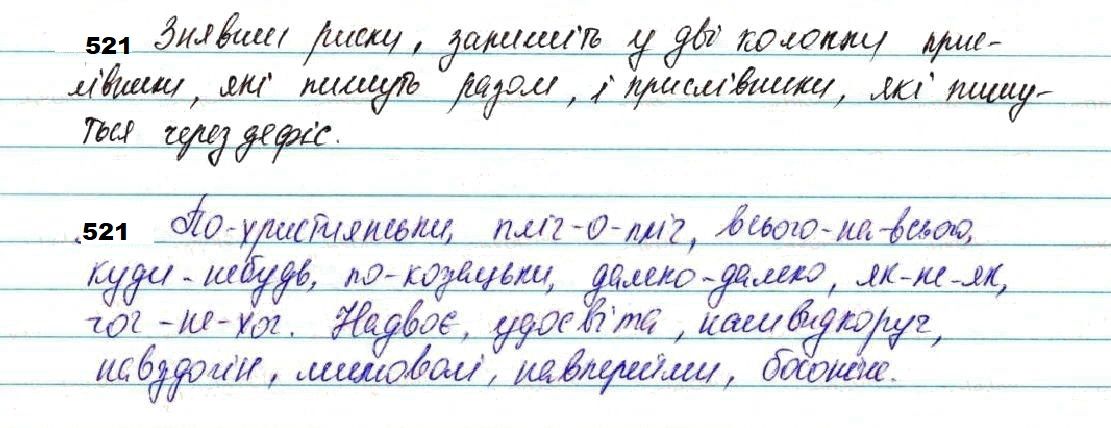 521 Знявши риску, запишіть у дві колонки прис-
лівники, які пишуть разом, і прислівники, які пишу-
ться через дефіс.
521 По-християнськи, пліч-о-пліч, всього-на-всього,
куди-небудь, по-козацьки, далеко-далеко, як-не-як,
хоч-не-хоч. Надвоє, удосвіта, нашвидкоруч,
навздогін, мимоволі, навперейми, босоніж.